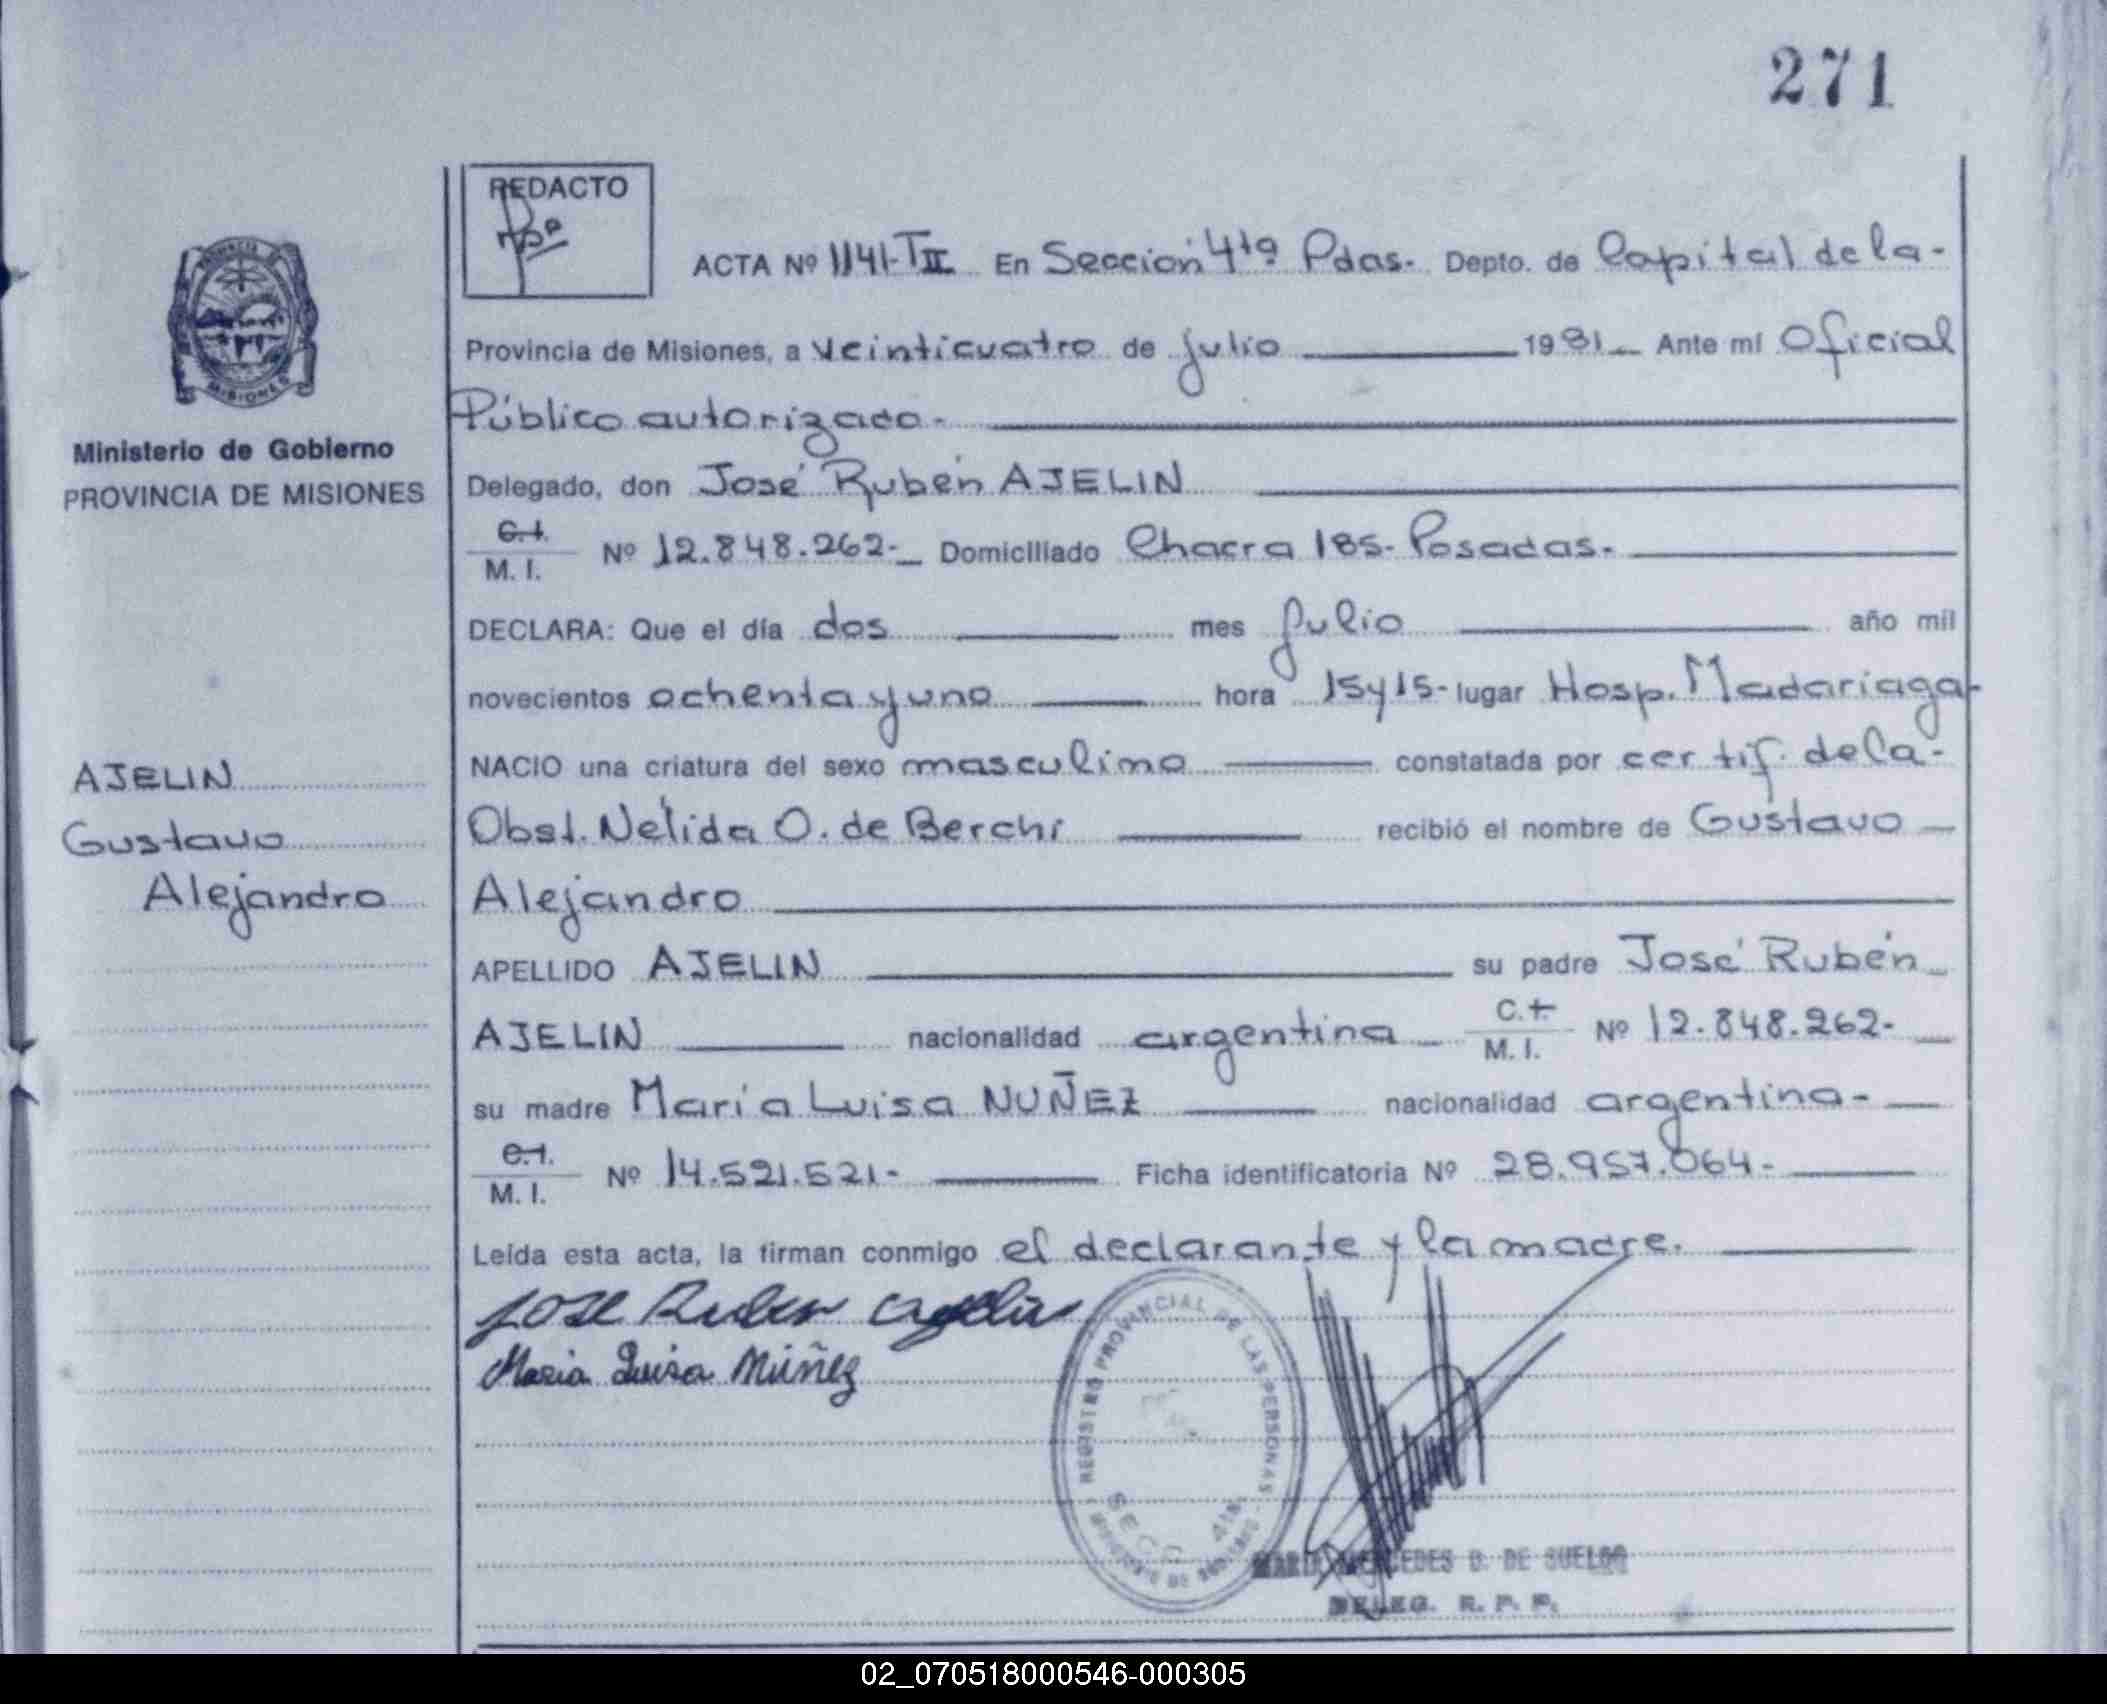 271
REDACTO
ACTA Nº 1141-TII En Sección 4ta Pdas. Depto. de Capital de la-
Provincia de Misiones, a veinticuatro de julio 1981 Ante mí Oficial
Público autorizado-
Ministerio de Gobierno
PROVINCIA DE MISIONES
Delegado, don José Rubén AJELIN
C.I.
M. I. Nº 12.848.262- Domiciliado Chacra 185- Posadas-
DECLARA: Que el día dos mes Julio año mil
novecientos ochenta y uno hora 15y15- lugar Hosp. Madariaga-
NACIO una criatura del sexo masculino constatada por certif. de la-
Obst. Nélida O. de Berchi recibió el nombre de Gustavo
Alejandro
AJELIN
Gustavo
Alejandro
APELLIDO AJELIN su padre José Rubén
AJELIN nacionalidad argentina C.I.
M. I. Nº 12.848.262-
su madre María Luisa NUÑEZ nacionalidad argentina-
C.I.
M. I. Nº 14.521.521- Ficha identificatoria Nº 28.957.064-
Leída esta acta, la firman conmigo el declarante y la madre.
Jose Ruben Ajelin
Maria Luisa Núñez
REGISTRO PROVINCIAL DE LAS PERSONAS
SECC. 4ta.
MINISTERIO DE GOBIERNO
MARIA MERCEDES D. DE SUELDO
DELEG. R. P. P.
PROVINCIA DE MISIONES
02_070518000546-000305